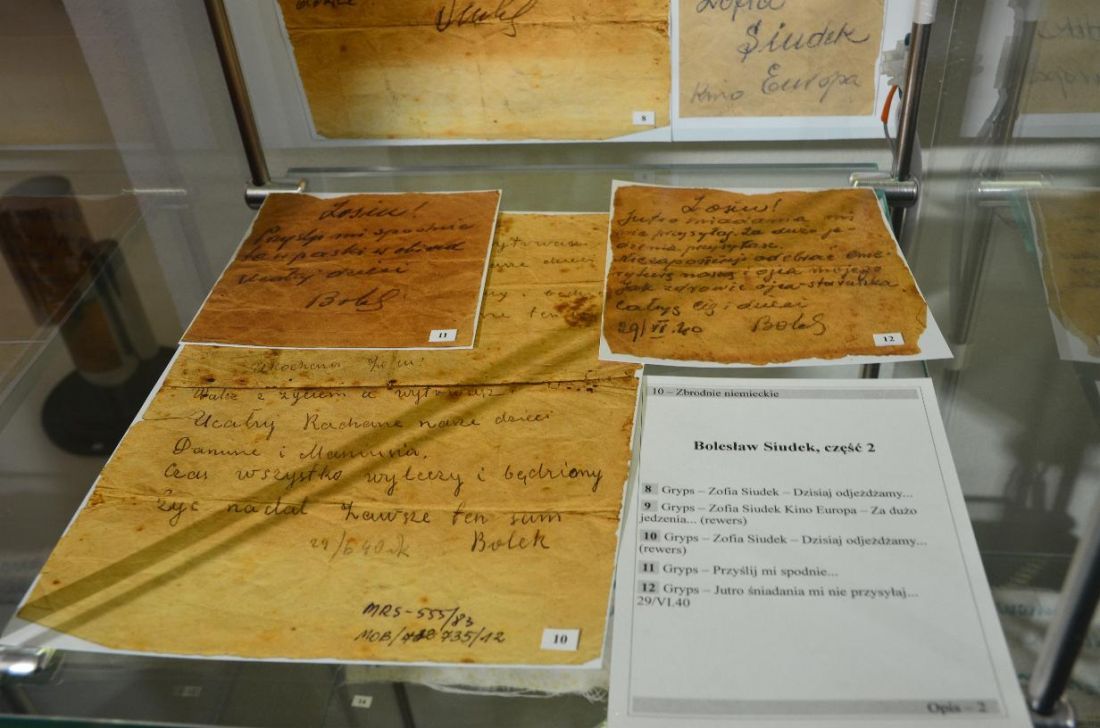 Siudek
8
Zofia
Siudek
Kino Europa
Zosiu!
Przyślij mi spodnie
Ucałuj dzieci
Bolek
11
Zosiu!
Jutro śniadania mi
nie przysyłaj. Za dużo je-
dzenia przysyłasz.
Niezapomnij odebrać eme-
ryturę naszą i ojca mojego
Jak zdrowie ojca-staruszka
Całuję Cię i dzieci
29/VI.40 Bolek
12
Ukochana
Walcz z życiem a wytrwasz
Ucałuj Kochane nasze dzieci
Danunię i
Czas wszystko wyleczy i będziemy
żyć nadal Zawsze ten sam
29/6 40 Bolek
MRS-555/83
MOB/ 735/12
10
10 – Zbrodnie niemieckie
Bolesław Siudek, część 2
8 Gryps – Zofia Siudek – Dzisiaj odjeżdżamy...
9 Gryps – Zofia Siudek Kino Europa – Za dużo
jedzenia... (rewers)
10 Gryps – Zofia Siudek – Dzisiaj odjeżdżamy...
(rewers)
11 Gryps – Przyślij mi spodnie...
12 Gryps – Jutro śniadania mi nie przysyłaj...
29/VI.40
Opis – 2
14